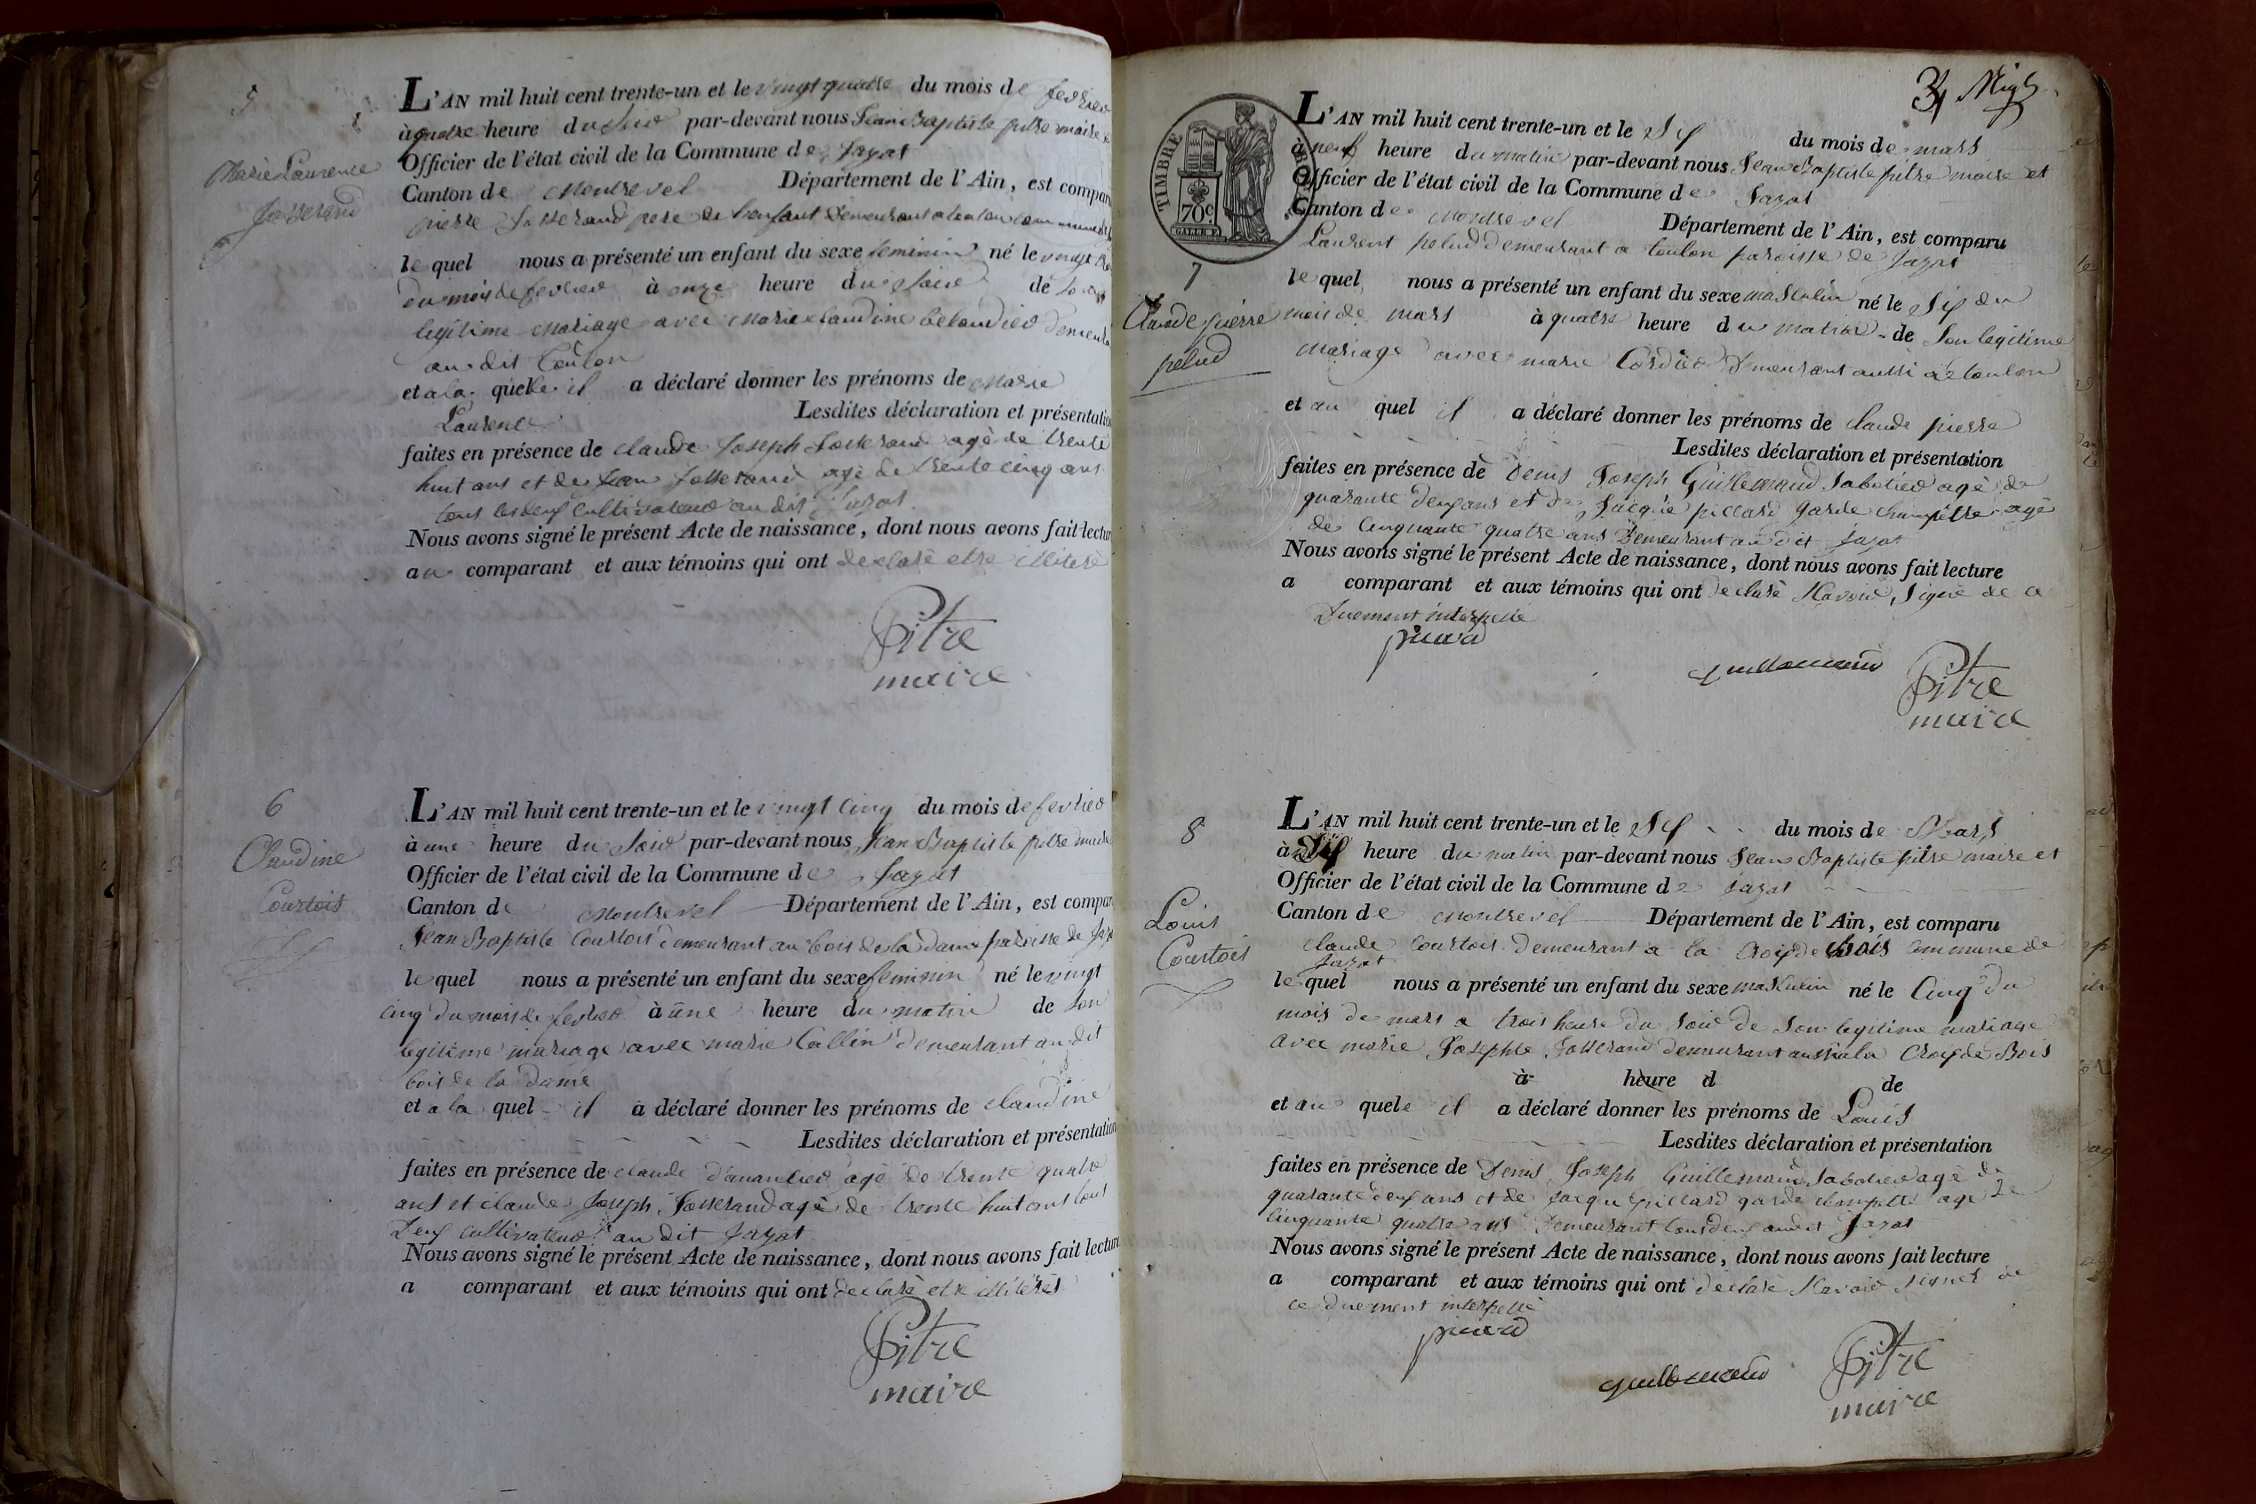 5
Marie Laurence
Josserand
L'AN mil huit cent trente-un et le vingt quatre du mois de fevrier
à quatre heure du soir par-devant nous Jean Baptiste pitre maire
Officier de l'état civil de la Commune de Jayat
Canton de Montrevel Département de l'Ain, est compar
pierre Josserand pere de l'enfant demeurant a
le quel nous a présenté un enfant du sexe feminin né le vingt
du mois de fevrier à onze heure du soir de
legitime mariage avec marie claudine
au dit toulon
et a la quelle il a déclaré donner les prénoms de Marie
Laurence Lesdites déclaration et présentation
faites en présence de claude Joseph Josserand agé de trente
huit ans et de Jean Josserand agé de trente cinq ans
tous les deux cultivateur au dit Jayat
Nous avons signé le présent Acte de naissance, dont nous avons fait lectur
au comparant et aux témoins qui ont declaré etre illiteré
Pitre
maire
6
Claudine
Courtois
L'AN mil huit cent trente-un et le vingt cinq du mois de fevrier
à une heure du soir par-devant nous Jean Baptiste pitre maire
Officier de l'état civil de la Commune de Jayat
Canton de Montrevel Département de l'Ain, est compar
Jean Baptiste Courtois demeurant au bois de la dame paroisse de
le quel nous a présenté un enfant du sexe feminin né le vingt
cinq du mois de fevrier à une heure du matin de son
legitime mariage avec marie Collin demeurant au dit
bois de la dame
et a la quel il a déclaré donner les prénoms de claudine
Lesdites déclaration et présentation
faites en présence de claude agé de trente quatre
ans et claude Joseph Josserand agé de trente huit ans tous
deux cultivateur au dit Jayat
Nous avons signé le présent Acte de naissance, dont nous avons fait lecture
a comparant et aux témoins qui ont declaré etre illiterés
Pitre
maire
TIMBRE ROYAL
70c.
7
Claude pierre
pelud
L'AN mil huit cent trente-un et le Six du mois de mars
à neuf heure du matin par-devant nous Jean Baptiste pitre maire et
Officier de l'état civil de la Commune de Jayat
Canton de Montrevel Département de l'Ain, est comparu
Laurent pelud demeurant a toulon paroisse de Jayat
le quel nous a présenté un enfant du sexe masculin né le Six du
mois de mars à quatre heure du matin de son legitime
mariage avec marie Cordier demeurant aussi a toulon
et au quel il a déclaré donner les prénoms de claude pierre
Lesdites déclaration et présentation
faites en présence de denis Joseph Guillemaud Sabotier agé de
quarante deux ans et de Jacque pillard garde champetre agé
de cinquante quatre ans demeurant au dit Jayat
Nous avons signé le présent Acte de naissance, dont nous avons fait lecture
a comparant et aux témoins qui ont declaré Savoir signé de ce
Duement interpellé
Guillemaud
Pitre
maire
8
Louis
Courtois
L'AN mil huit cent trente-un et le Six du mois de Mars
à Dix heure du matin par-devant nous Jean Baptiste pitre maire et
Officier de l'état civil de la Commune de Jayat
Canton de Montrevel Département de l'Ain, est comparu
claude Courtois demeurant a la Croix de bois commune de
Jayat
le quel nous a présenté un enfant du sexe masculin né le Cinq du
mois de mars a trois heure du soir de son legitime mariage
avec marie Josephte Josserand demeurant aussi a la Croix de Bois
à heure d de
et au quele il a déclaré donner les prénoms de Louis
Lesdites déclaration et présentation
faites en présence de Denis Joseph Guillemaud Sabotier agé de
quarante deux ans et de Jacque pillard garde champetre agé de
cinquante quatre ans demeurant tous deux audit Jayat
Nous avons signé le présent Acte de naissance, dont nous avons fait lecture
a comparant et aux témoins qui ont declaré Savoir signer de
ce duement interpellé
Guillemaud
Pitre
maire